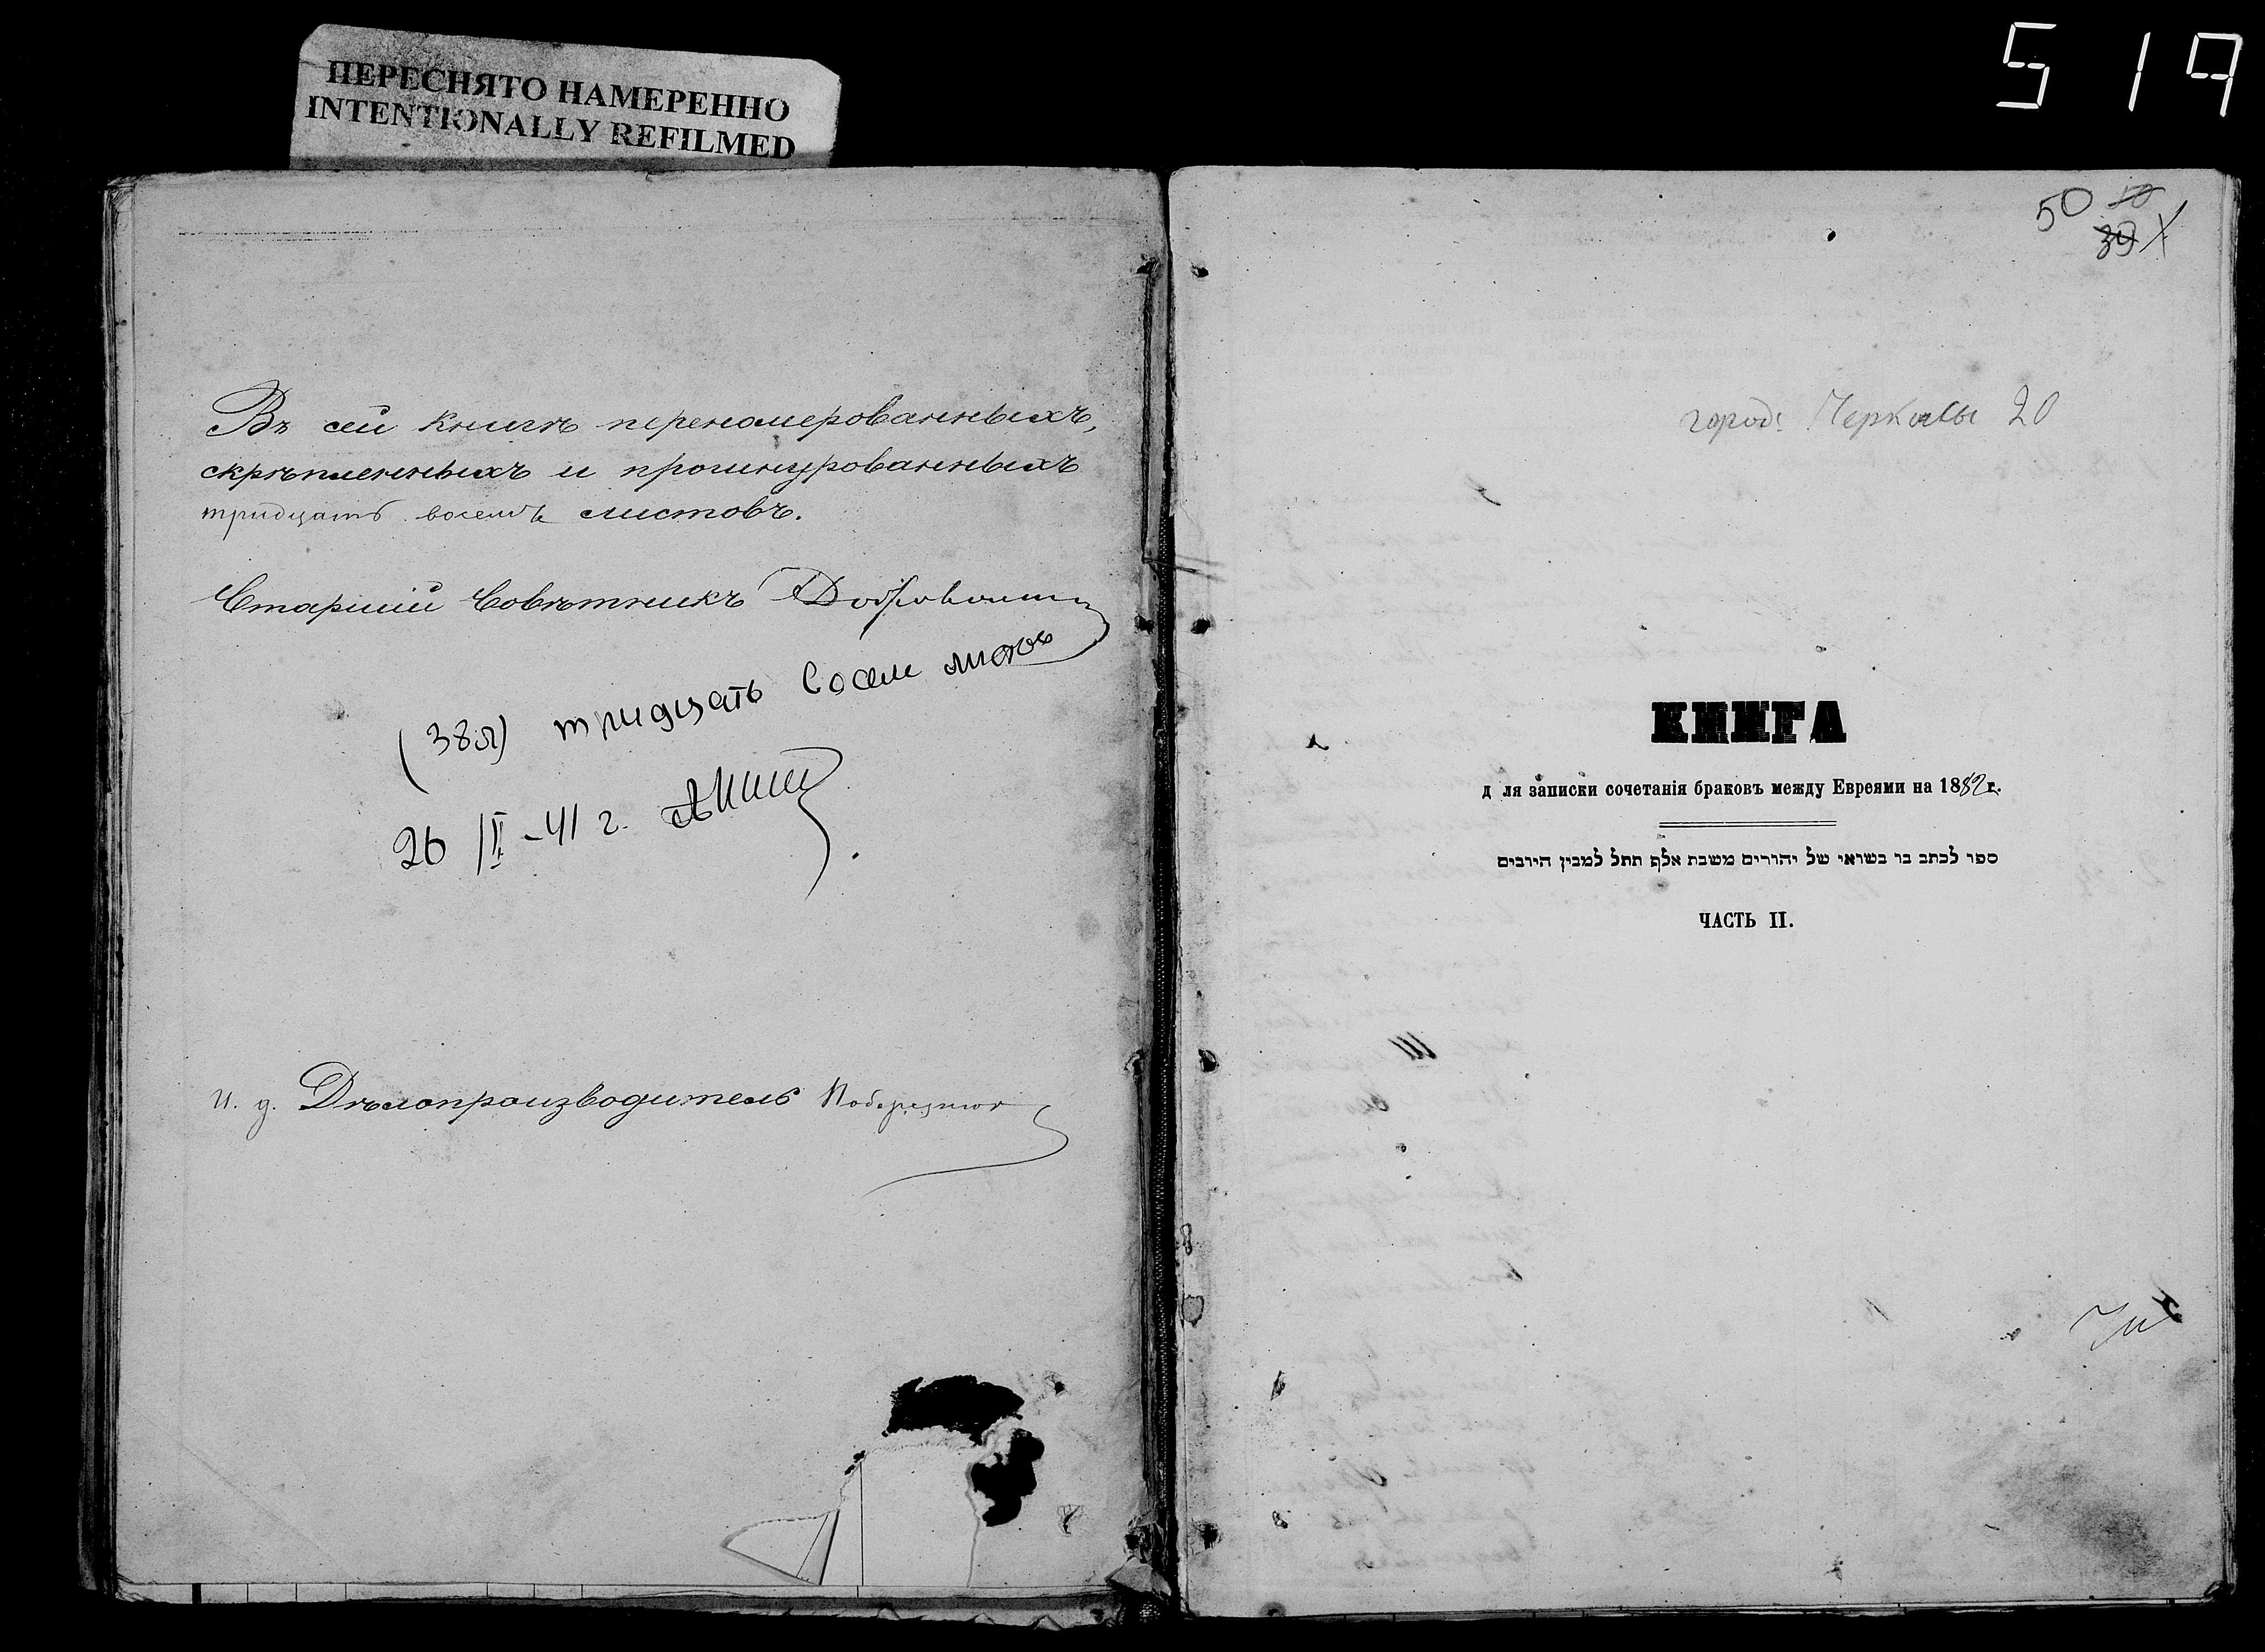 519
ПЕРЕСНЯТО НАМЕРЕННО
INTENTIONALLY REFILMED
Въ сей книгѣ переномерованныхъ,
скрѣпленныхъ и прошнурованныхъ
тридцать восемь листовъ.
Старшій Совѣтникъ
(38л) тридцать восем листов
26/II-41 г.
И. д. Дѣлопроизводитель
50 50
39
город: Черкасы 20
КНИГА
д ля записки сочетанія браковъ между Евреями на 1882 г.
ספר לכתב בו בשואי של יהורים משבת אלף תתל למבין הירבים
ЧАСТЬ II.